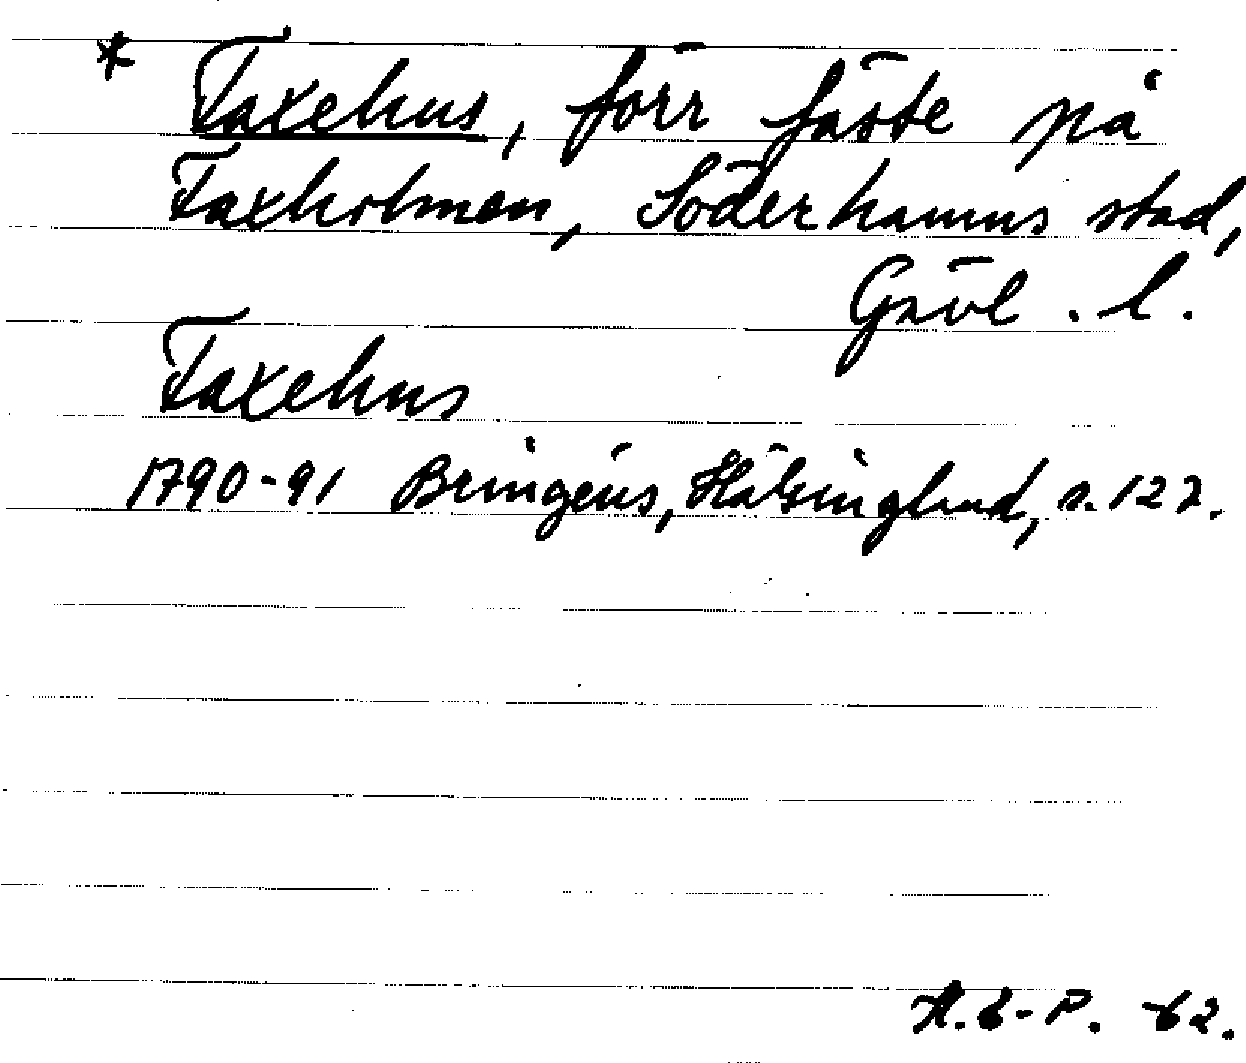 * Faxehus, förr fäste på
Faxholmen, Söderhamns stad,
Gävl. l.
Faxehus
1790-91 Bringéus, Hälsingland, s. 127.